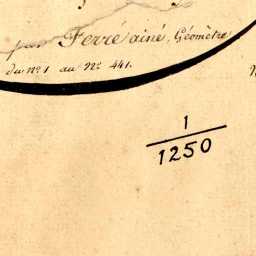 par Ferré ainé, Géomètre
du nº. 1 au Nº. 441.
1
1250